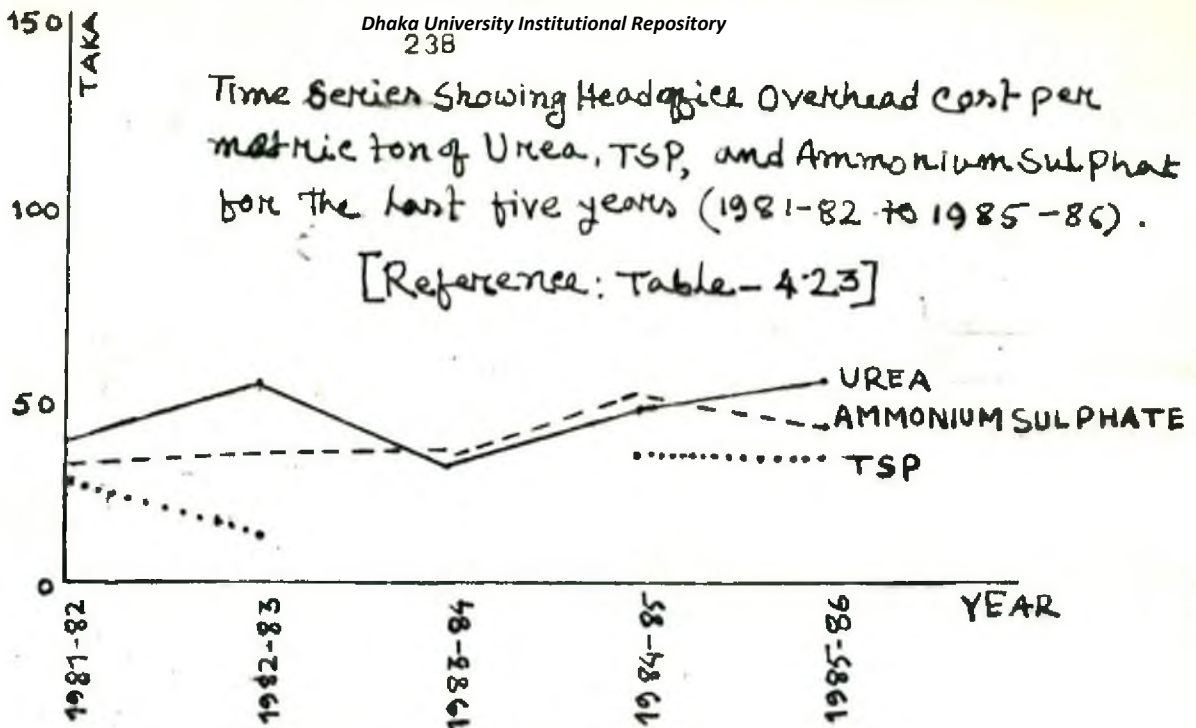 Dhaka University Institutional Repository
238
150
TAKA
Time Series Showing Headoffice Overhead cost per
metric ton of Urea, TSP, and Ammonium Sulphat
for the last five years (1981-82 to 1985-86).
100
[Reference: Table-4.23]
UREA
50
AMMONIUM SULPHATE
TSP
0
YEAR
1981-82
1982-83
1983-84
1984-85
1985-86